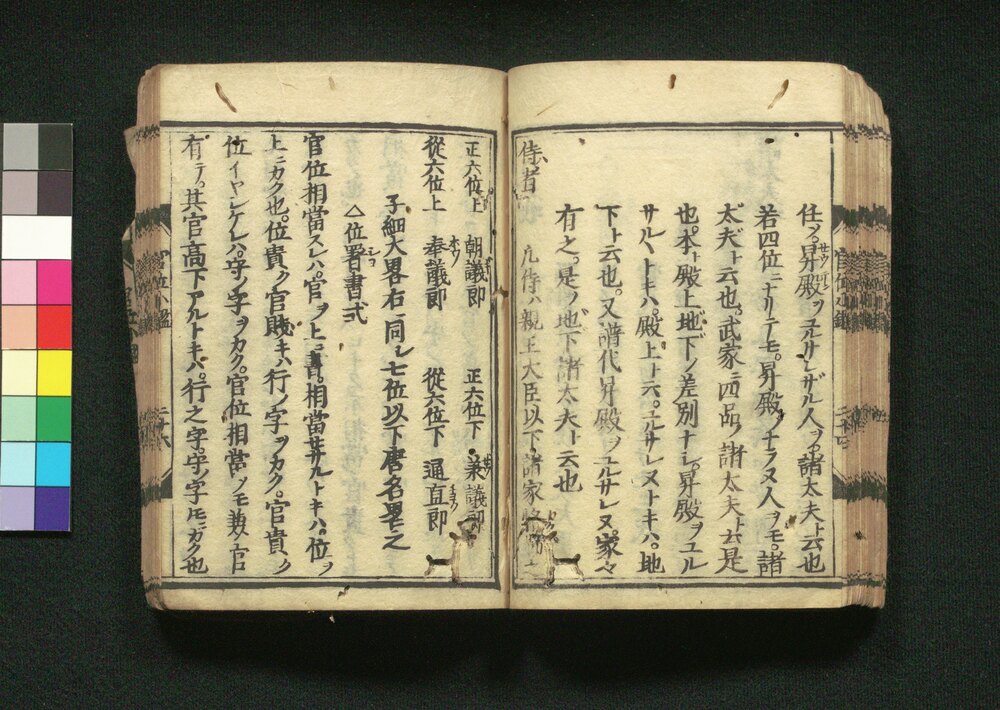 任ノ昇殿ヲユルサレザル人ヲ諸太夫ト云也
若四位ニナリテモ。昇殿ノナラヌ人ヲモ。諸
太夫ト云也。武家ニ四品ノ諸太夫ト云是
也。本ト殿上地下ノ差別ナレ。昇殿ヲユル
サルヽトキハ。殿上ト云。ユルサレヌトキハ。地
下ト云也。又譜代昇殿ヲユルサレヌ。家々
有之。是ノ地下諸太夫ト云也
侍者 凡侍ハ親王大臣以下。諸家
正六位上 朝議郎 正六位下 承議郎
從六位上 奉議郎 從六位下 通直郎
子細大畧右ニ同レ七位以下唐名畧之
△位署書式
官位相當スレバ。官ヲ上ニ書。相當せサルトキハ。位ヲ
上ニカク也。位貴ク官賎キハ行ノ字ヲカク。官貴ク
位イヤシケレバ。守ノ字ヲカク。官位相當ノモ兼官
有テ。其官高下アルトキハ。行之字。守ノ字ヲモカク也
官位小鑑
二十六